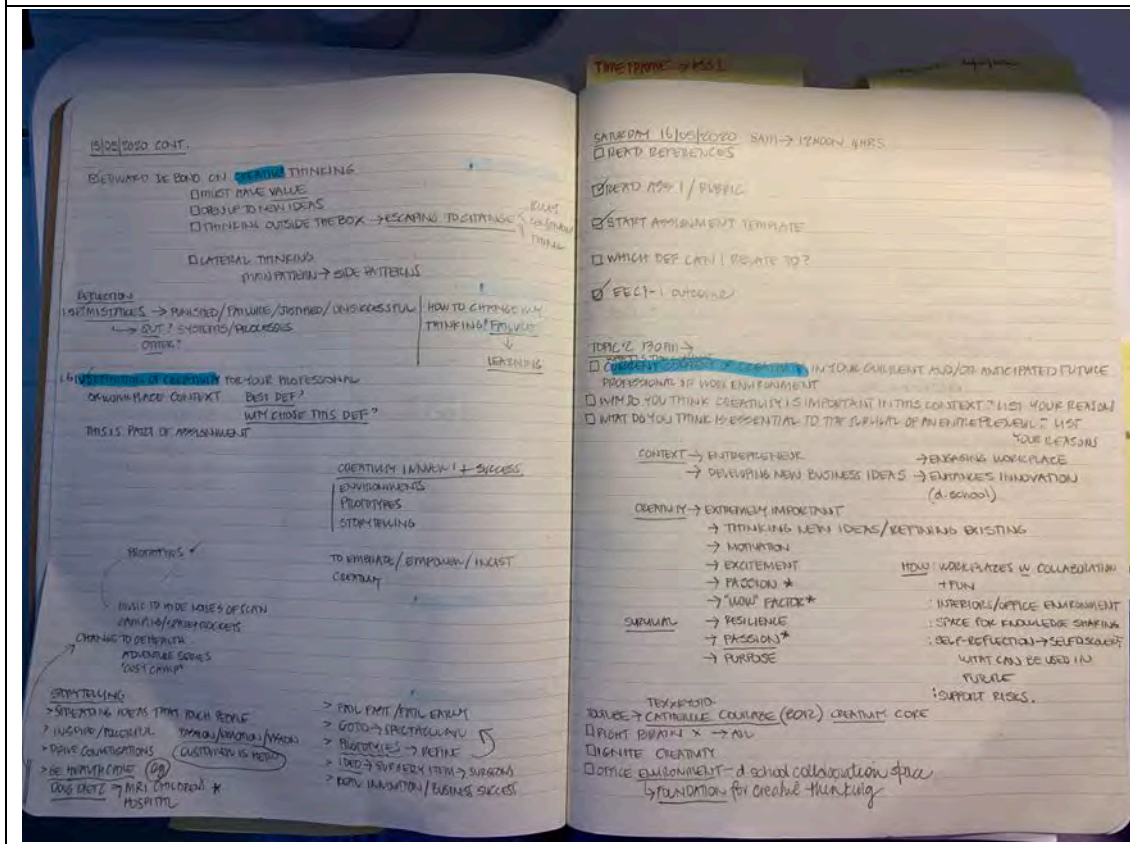 TIMEFRAME → ASS 1
15/05/2020 CONT.
EDWARD DE BONO ON CREATIVE THINKING
MUST HAVE VALUE
OPEN UP TO NEW IDEAS
THINKING OUTSIDE THE BOX → ESCAPING TO CHANGE
RULES
THING
LATERAL THINKING
MAIN PATTERN → SIDE PATTERNS
REFLECTION
MISTAKES → PUNISHED/FAILURE/ /UNSUCCESSFUL
BUT? SYSTEMS/PROCESSES
OTHER?
HOW TO CHANGE MY
THINKING? FAILURE
↓
LEARNING
1.6 DEFINITION OF CREATIVITY FOR YOUR PROFESSIONAL
OR WORKPLACE CONTEXT BEST DEF?
WHY CHOSE THIS DEF?
THIS IS PART OF ASSIGNMENT
CREATIVITY + SUCCESS
ENVIRONMENTS
PROTOTYPES
STORYTELLING
TO EMBRACE/EMPOWER/
CREATIVITY
PROTOTYPES
MUSIC TO HIDE NOISES OF SCAN
CAMPING/SPACE ROCKETS
CHANGE TO GE HEALTH
ADVENTURE SERIES
"COSY CAMP"
STORYTELLING
> SPREADING IDEAS THAT TOUCH PEOPLE
> INSPIRE/POWERFUL /EMOTION/
> DRIVE CONVERSATIONS CUSTOMER IS HERO
> GE HEALTHCARE eg
DOUG DIETZ → MRI CHILDREN'S *
HOSPITAL
> FAIL FAST/FAIL EARLY
> GOOD → SPECTACULAR
> PROTOTYPES → REFINE
> IDEO → SURGERY ITEM → SURGEONS
> REAL INNOVATION/BUSINESS SUCCESS
SATURDAY 16/05/2020 8AM → 12NOON 4HRS
READ REFERENCES
READ ASS 1/RUBRIC
START ASSIGNMENT TEMPLATE
WHICH DEF CAN I RELATE TO?
TOPIC 2 130PM →
CURRENT CONTEXT OF CREATIVITY IN YOUR CURRENT AND/OR ANTICIPATED FUTURE
PROFESSIONAL OR WORK ENVIRONMENT
WHY DO YOU THINK CREATIVITY IS IMPORTANT IN THIS CONTEXT? LIST YOUR REASON
WHAT DO YOU THINK IS ESSENTIAL TO THE SURVIVAL OF AN ENTREPRENEUR? LIST
YOUR REASONS
CONTEXT → ENTREPRENEUR → ENGAGING WORKPLACE
→ DEVELOPING NEW BUSINESS IDEAS → ENHANCES INNOVATION
(d.school)
CREATIVITY → EXTREMELY IMPORTANT
→ THINKING NEW IDEAS/REFINING EXISTING
→ MOTIVATION
→ EXCITEMENT
→ PASSION *
→ "WOW" FACTOR *
SURVIVAL → RESILIENCE
→ PASSION *
→ PURPOSE
HOW: WORKPLACES W COLLABORATION
+ FUN
: INTERIORS/OFFICE ENVIRONMENT
: SPACE FOR KNOWLEDGE SHARING
: SELF-REFLECTION → SELF DISCOVERY
WHAT CAN BE USED IN
FUTURE
: SUPPORT RISKS.
YOUTUBE → CATHERINE COURAGE (2012) CREATIVITY CORE
RIGHT BRAIN X → ALL
IGNITE CREATIVITY
OFFICE ENVIRONMENT - d school collaboration space
↳ FOUNDATION for creative thinking